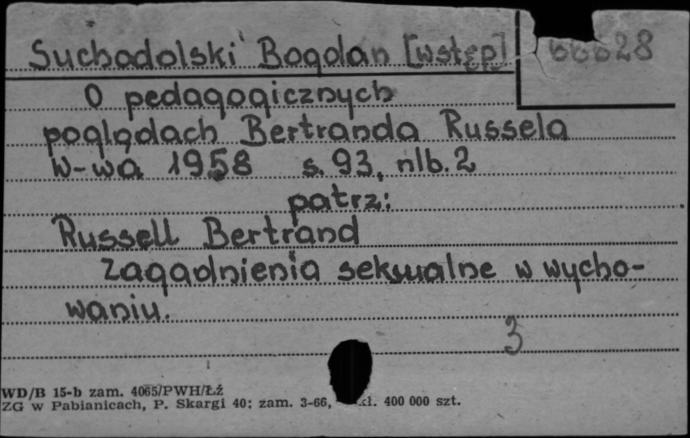 Suchodolski Bogdan [wstęp] 66628
O pedagogicznych
poglądach Bertranda Russela
W-wa 1958 s. 93, nlb. 2
patrz:
Russell Bertrand
Zagadnienia seksualne w wycho-
waniu.
3
WD/B 15-b zam. 4065/PWH/Łź
ZG w Pabianicach, P. Skargi 40; zam. 3-66, 400 000 szt.